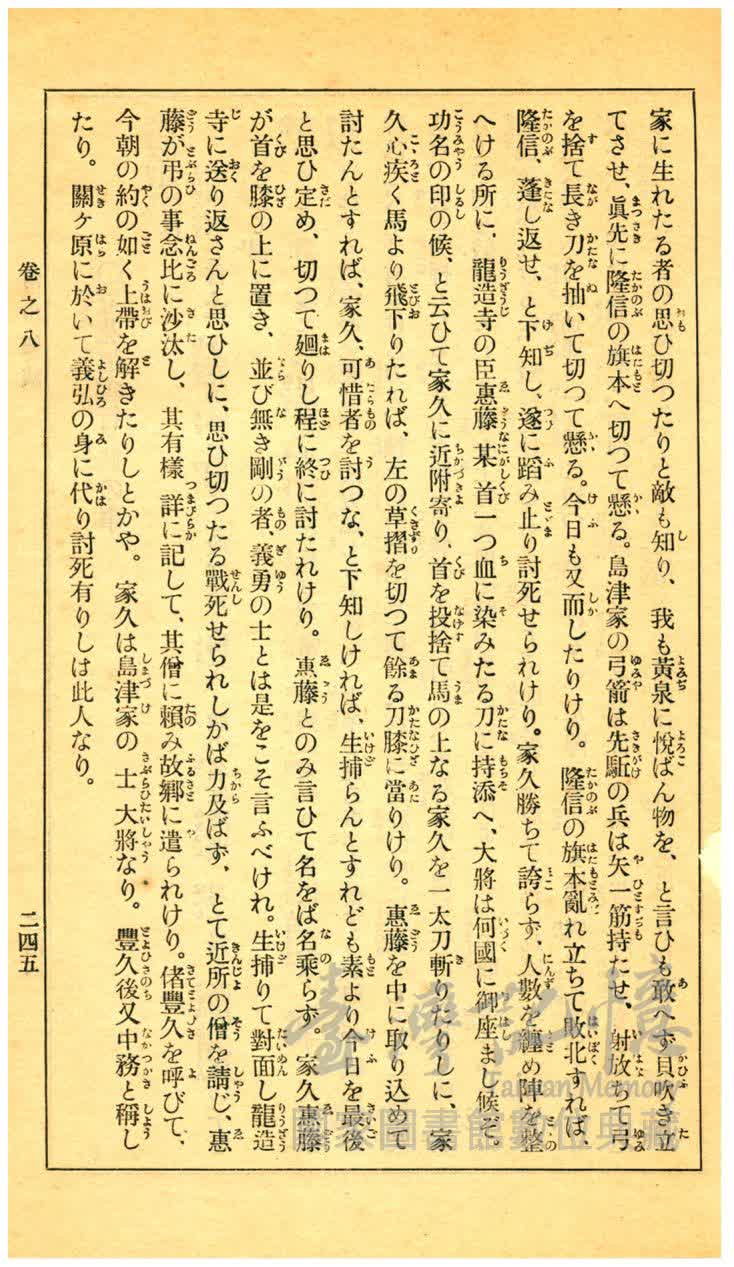 家に生れたる者の思ひ切つたりと敵も知り、我も黃泉に悅ばん物を、と言ひも敢へず貝吹き立
てさせ、眞先に隆信の旗本へ切つて懸る。島津家の弓箭は先駈の兵は矢一筋持たせ、射放ちて弓
を捨て長き刀を抽いて切つて懸る。今日も又而したりけり。隆信の旗本亂れ立ちて敗北すれば、
隆信、蓬し返せ、と下知し、遂に蹈み止り討死せられけり。家久勝ちて誇らず、人數を纏め陣を整
へける所に、龍造寺の臣惠藤某首一つ血に染みたる刀に持添へ、大將は何國に御座まし候ぞ。
功名の印の候、と云ひて家久に近附寄り、首を投捨て馬の上なる家久を一太刀斬りたりしに、家
久心疾く馬より飛下りたれば、左の草摺を切つて餘る刀膝に當りけり。惠藤を中に取り込めて
討たんとすれば、家久、可惜者を討つな、と下知しければ、生捕らんとすれども素より今日を最後
と思ひ定め、切つて廻りし程に終に討たれけり。惠藤とのみ言ひて名をば名乘らず。家久惠藤
が首を膝の上に置き、並び無き剛の者、義勇の士とは是をこそ言ふべけれ。生捕りて對面し龍造
寺に送り返さんと思ひしに、思ひ切つたる戰死せられしかば力及ばず、とて近所の僧を請じ、惠
藤が弔の事念比に沙汰し、其有樣詳に記して、其僧に賴み故鄉に遣られけり。偖豐久を呼びて、
今朝の約の如く上帶を解きたりしとかや。家久は島津家の士大將なり。豐久後又中務と稱し
たり。關ヶ原に於いて義弘の身に代り討死有りしは此人なり。
卷之八
二四五
臺灣記憶
Taiwan Memory
國家圖書館數位典藏